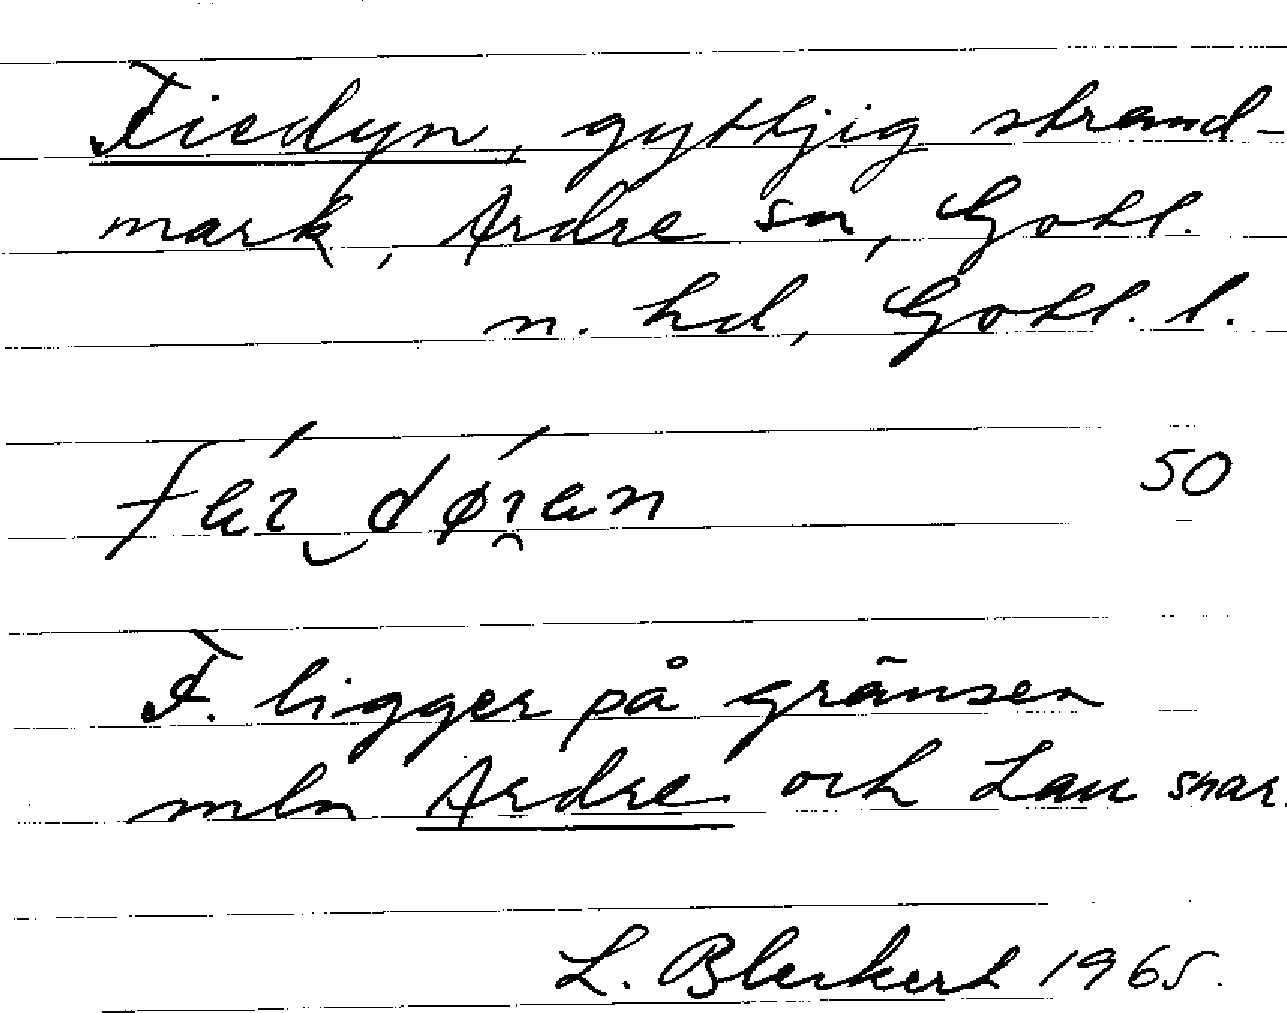 Fiedyn, gyttjig strand-
mark, Ardre sn, Gotl.
n. hd, Gotl. l.
50
F. ligger på gränsen
mln Ardre och Lau snar.
L. Bleckert 1965.